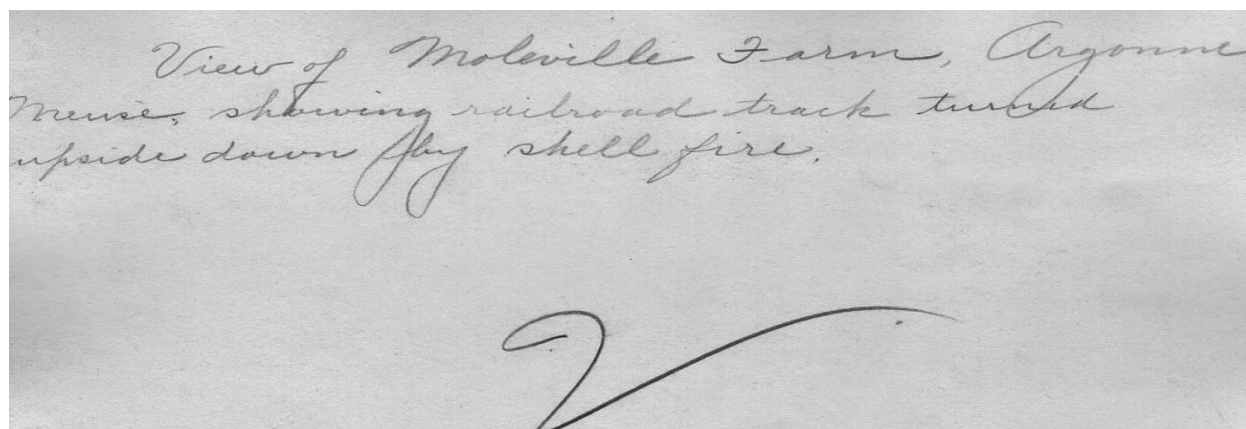 View of Moleville Farm, Argonne
Meuse, showing railroad track turned
upside down by shell fire.